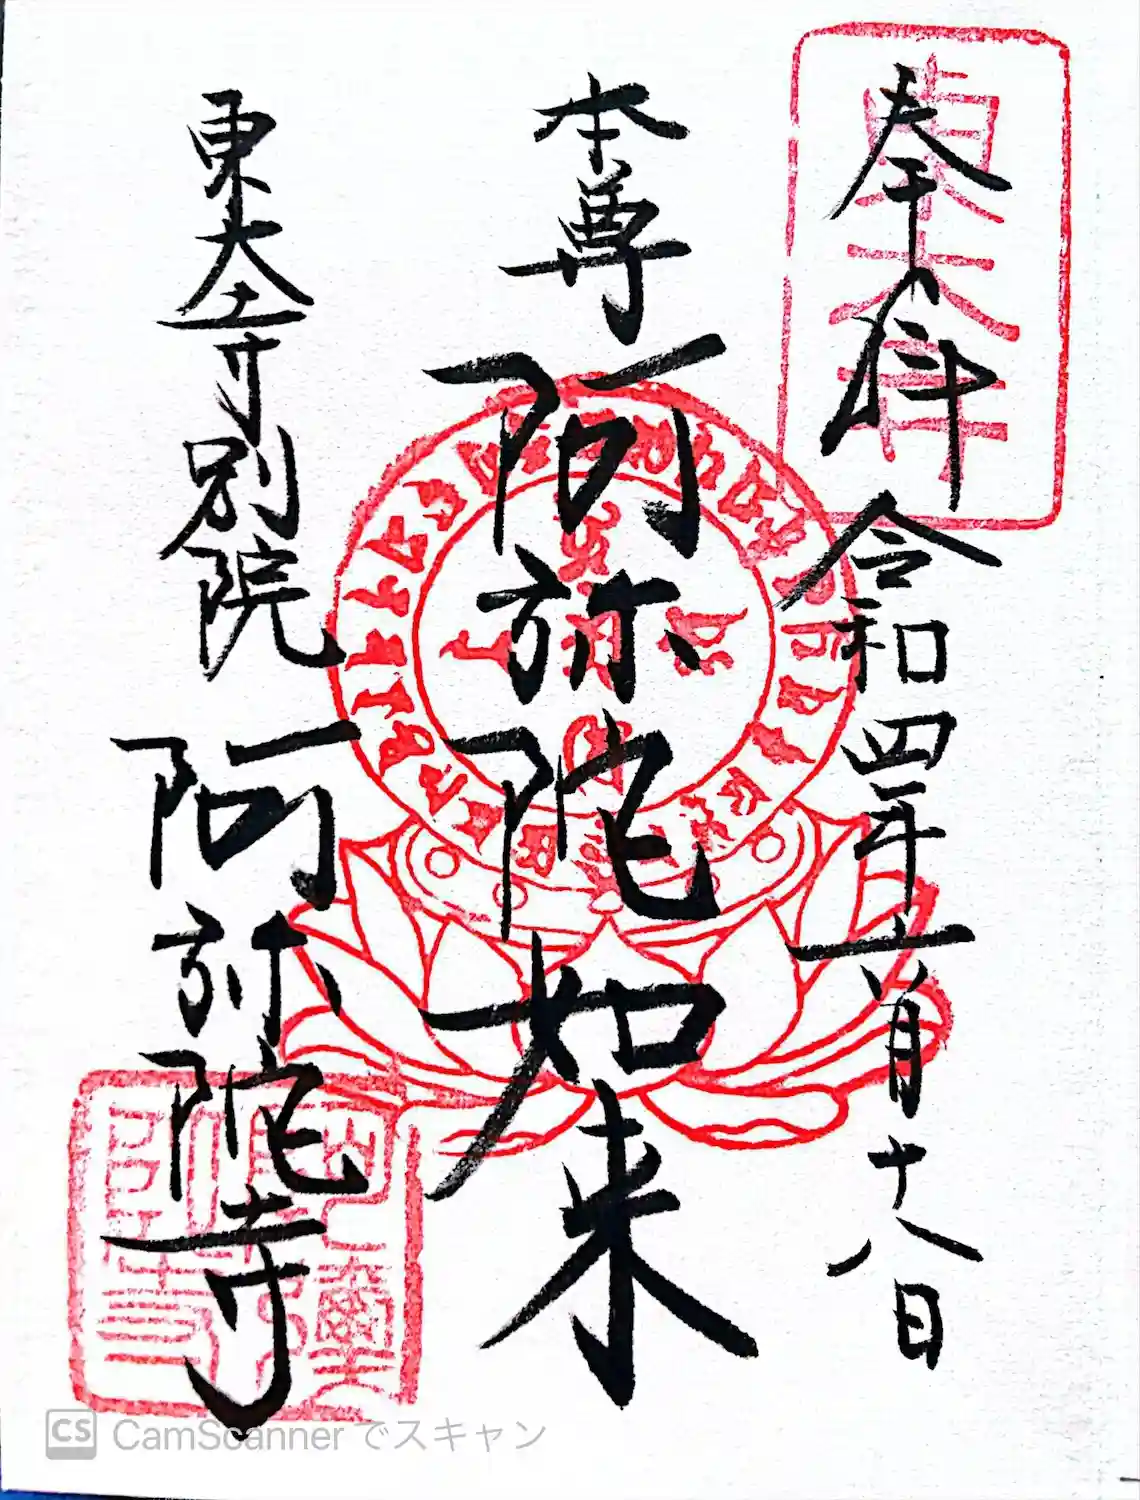 奉拝 令和四年六月十八日
本尊 阿弥陀如来
東大寺別院 阿弥陀寺
CS CamScanner でスキャン